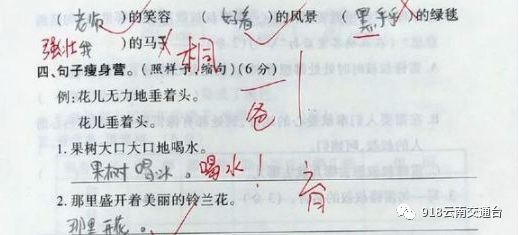 (老师)的笑容 (好看)的风景 (黑乎乎)的绿毯
强壮 )的马
四、句子瘦身营。(照样子,缩句)(6分)
例:花儿无力地垂着头。
花儿垂着头。
爸
1. 果树大口大口地喝水。
果树喝冰。喝水!
2. 那里盛开着美丽的铃兰花。
那里开花。
918云南交通台